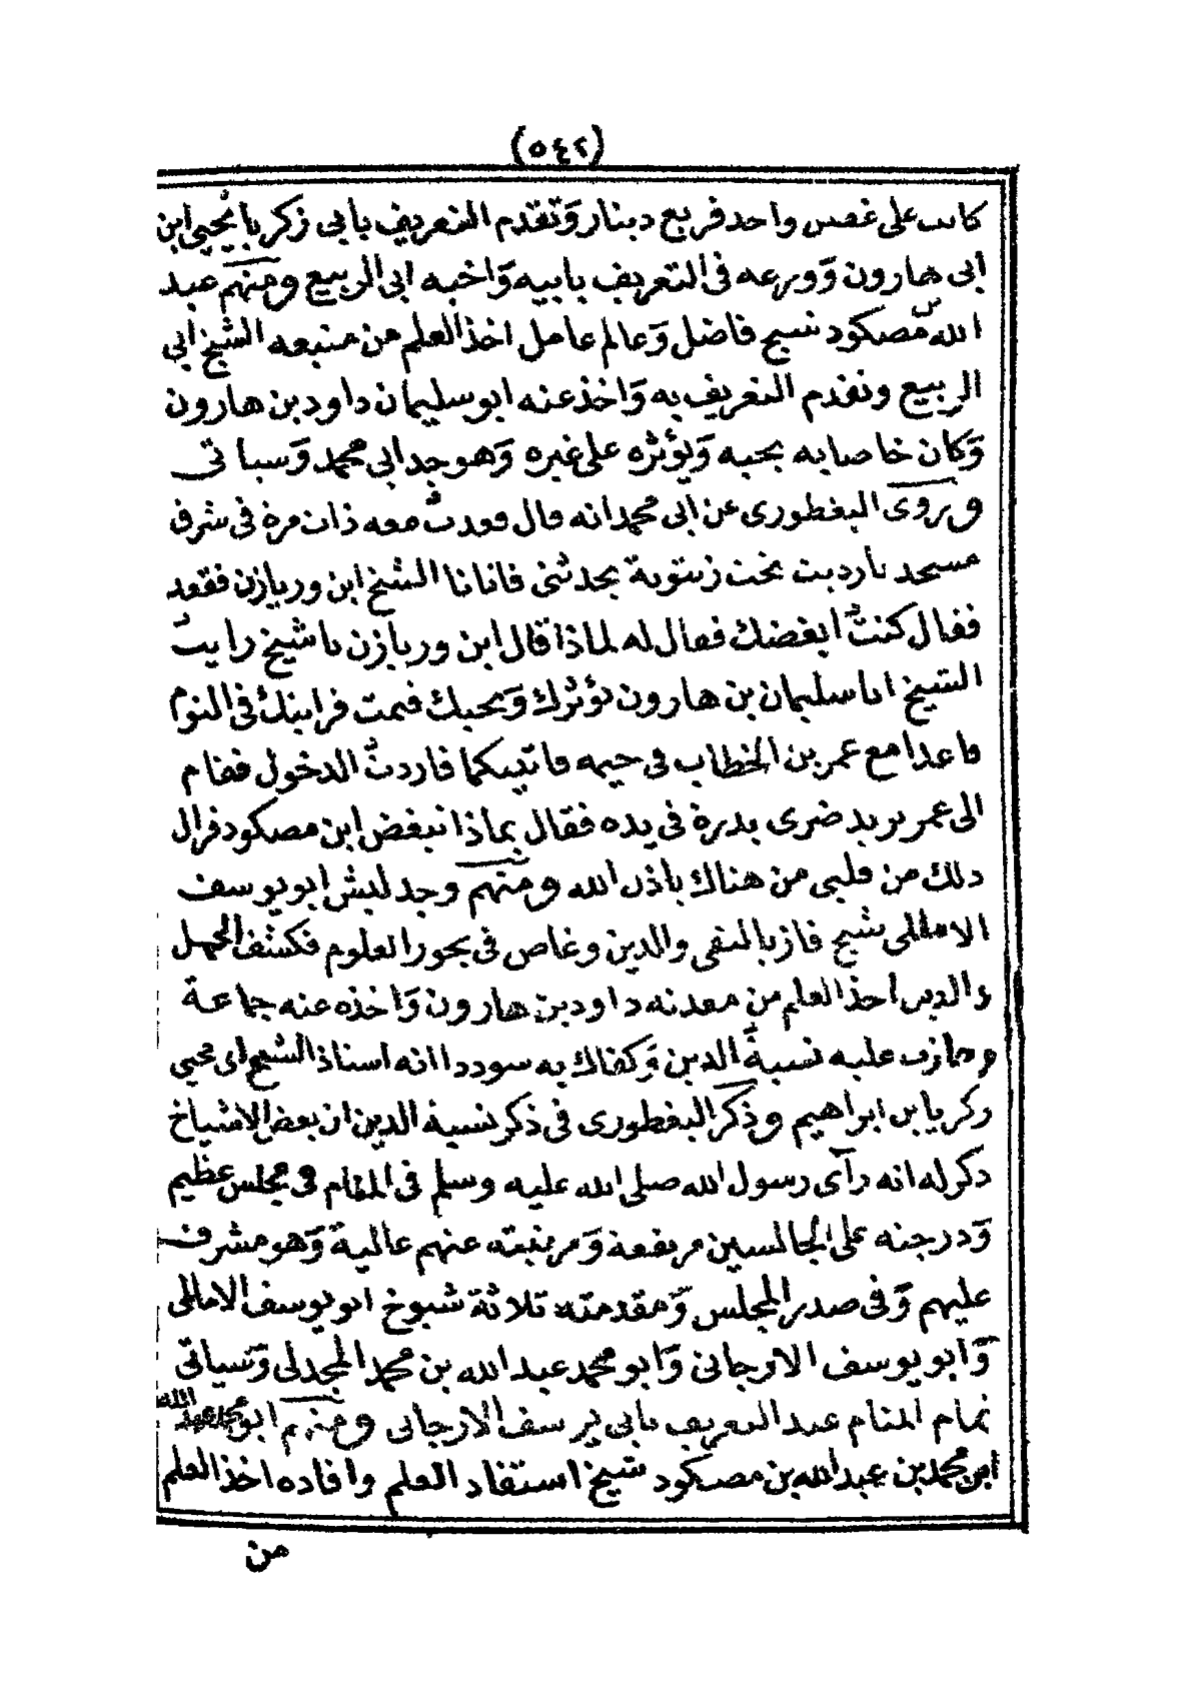 (٥٤٢)
كانت على غصن واحد فربع دينار وَتقدم التعريف بابى زكريا يُحيى ابن
ابى هارون وَورعه فى التعريف بابيه وَاخيه ابى الربيع ومنهم عبد
الله بن مصكود شيخ فاضل وَعالم عامل اخذ العلم من منبعه الشيخ ابى
الربيع وتقدم التعريف به وَاخذ عنه ابو سليمان داود بن هارون
وَكان خاصا به يحبه وَيؤثره على غيره وَهو جد ابى محمد وَسياتى
وروى البغطورى عن ابى محمد انه قال قعدتُ معه ذات مرة فى شرق
مسجد تحت زيتونة يحدثنى فاتانا الشيخ ابن وريازن فقعد
فقال كنتُ ابغضك فقال له لماذا قال ابن وريازن يا شيخ رايتُ
الشيخ ابا سليمان بن هارون يؤثرك وَيحبك فنمت فرايتك فى النوم
قاعدا مع عمر بن الخطاب فى خيمه فاتيتكما فاردتُ الدخول فقام
الى عمر يريد ضربى بدرة فى يده فقال بماذا تبغض ابن مصكود فزال
ذلك من قلبى من هناك باذن الله ومنهم وجد ليش ابو يوسف
الامللى شيخ فاز بالتقى والدين وغاص فى بحور العلوم فكشف الجهل
والدين اخذ العلم من معدنه داود بن هارون وَاخذه عنه جماعة
وجازت عليه نسبةُ الدين وَكفاك به سوددا انه استاذ الشيخ ابى يحيى
زكريا بن ابراهيم وذكر البغطورى فى ذكر نسبة الدين ان بعض الاشياخ
ذكر له انه رآى رسول الله صلى الله عليه وسلم فى المنام فى مجلس عظيم
وَدرجته على الجالسين مرتفعة وَمرتبته عنهم عالية وَهو مشرف
عليهم وَفى صدر المجلس وَمقدمته ثلاثة شيوخ ابو يوسف الامللى
وَابو يوسف الارجانى وَابو محمد عبد الله بن محمد المجدلى وَسياتى
تمام المنام عند التعريف بابى يوسف الارجانى ومنهم ابو محمد عبد الله
ابن محمد بن عبد الله بن مصكود شيخ استفاد العلم وافاده اخذ العلم
من